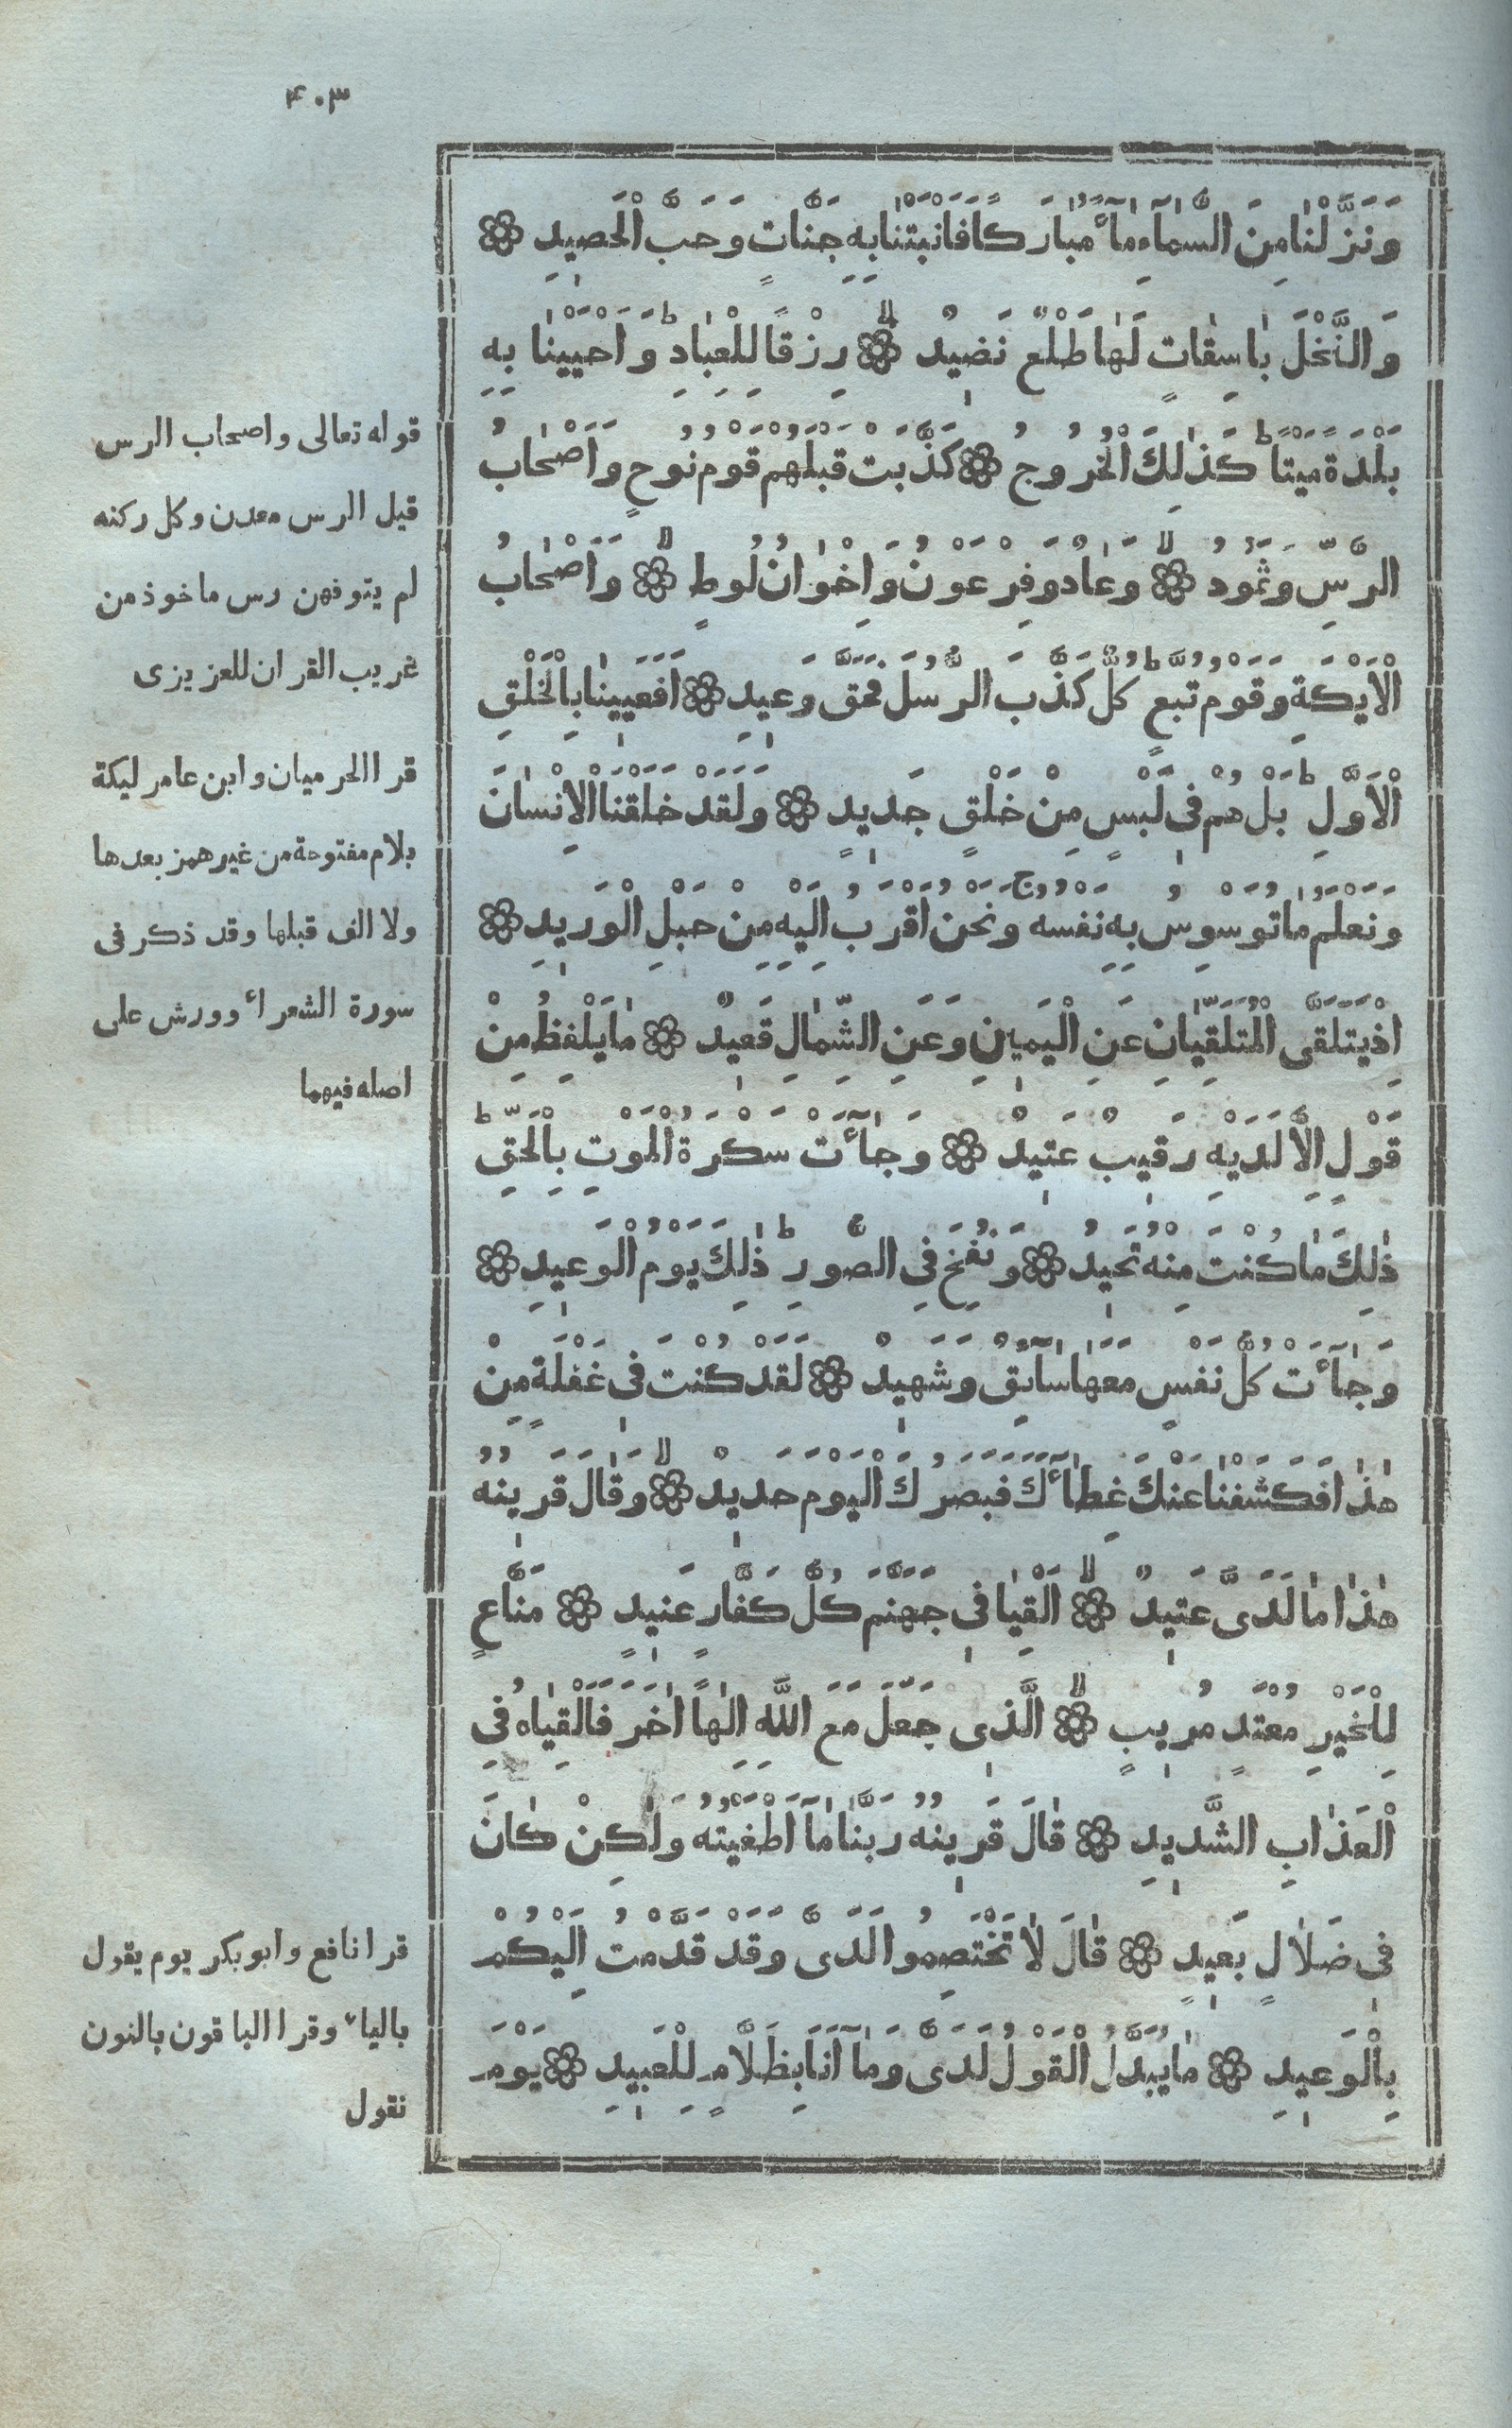 ٤٠٣
وَنَزَّلْنٰا مِنَ السَّمٰآءِ مٰآءً مُبٰارَكًا فَاَنْبَتْنٰا بِهِ جَنَّاتٍ وَحَبَّ الْحَصٖيدِ ۞
وَالنَّخْلَ بٰاسِقٰاتٍ لَهٰا طَلْعٌ نَضٖيدٌ ۙ۞ رِزْقًا لِلْعِبٰادِ ؕ وَاَحْيَيْنٰا بِهِ
بَلْدَةً مَيْتًا ؕ كَذٰلِكَ الْخُرُوجُ ۞ كَذَّبَتْ قَبْلَهُمْ قَوْمُ نُوحٍ وَاَصْحٰابُ
الرَّسِّ وَثَمُودُ ۙ۞ وَعٰادٌ وَفِرْعَوْنُ وَاِخْوٰانُ لُوطٍ ۙ۞ وَاَصْحٰابُ
الْاَيْكَةِ وَقَوْمُ تُبَّعٍ ؕ كُلٌّ كَذَّبَ الرُّسُلَ فَحَقَّ وَعٖيدِ ۞ اَفَعَيٖينٰا بِالْخَلْقِ
الْاَوَّلِ ؕ بَلْ هُمْ فٖى لَبْسٍ مِنْ خَلْقٍ جَدٖيدٍ ۞ وَلَقَدْ خَلَقْنَا الْاِنْسٰانَ
وَنَعْلَمُ مٰا تُوَسْوِسُ بِهِ نَفْسُهُ ۚ وَنَحْنُ اَقْرَبُ اِلَيْهِ مِنْ حَبْلِ الْوَرٖيدِ ۞
اِذْ يَتَلَقَّى الْمُتَلَقِّيٰانِ عَنِ الْيَمٖينِ وَعَنِ الشِّمٰالِ قَعٖيدٌ ۞ مٰا يَلْفِظُ مِنْ
قَوْلٍ اِلَّا لَدَيْهِ رَقٖيبٌ عَتٖيدٌ ۞ وَجٰآءَتْ سَكْرَةُ الْمَوْتِ بِالْحَقِّ ؕ
ذٰلِكَ مٰا كُنْتَ مِنْهُ تَحٖيدُ ۞ وَنُفِخَ فِى الصُّورِ ؕ ذٰلِكَ يَوْمُ الْوَعٖيدِ ۞
وَجٰآءَتْ كُلُّ نَفْسٍ مَعَهٰا سٰآئِقٌ وَشَهٖيدٌ ۞ لَقَدْ كُنْتَ فٖى غَفْلَةٍ مِنْ
هٰذٰا فَكَشَفْنٰا عَنْكَ غِطٰآءَكَ فَبَصَرُكَ الْيَوْمَ حَدٖيدٌ ۙ۞ وَقٰالَ قَرٖينُهُ
هٰذٰا مٰا لَدَىَّ عَتٖيدٌ ۙ۞ اَلْقِيٰا فٖى جَهَنَّمَ كُلَّ كَفَّارٍ عَنٖيدٍ ۞ مَنَّاعٍ
لِلْخَيْرِ مُعْتَدٍ مُرٖيبٍ ۙ۞ الَّذٖى جَعَلَ مَعَ اللّٰهِ اِلٰهًا اٰخَرَ فَاَلْقِيٰاهُ فِى
الْعَذٰابِ الشَّدٖيدِ ۞ قٰالَ قَرٖينُهُ رَبَّنٰا مٰآ اَطْغَيْتُهُ وَلٰكِنْ كٰانَ
فٖى ضَلٰالٍ بَعٖيدٍ ۞ قٰالَ لٰا تَخْتَصِمُوا لَدَىَّ وَقَدْ قَدَّمْتُ اِلَيْكُمْ
بِالْوَعٖيدِ ۞ مٰا يُبَدَّلُ الْقَوْلُ لَدَىَّ وَمٰآ اَنَا بِظَلَّامٍ لِلْعَبٖيدِ ۞ يَوْمَ
قوله تعالى واصحاب الرس
قيل الرس معدن وكل ركنه
لم يتوفهن رس ماخوذ من
غريب القران للعزيزى
قرا الحرميان وابن عامر ليكة
بلام مفتوحة من غير همز بعدها
ولا الف قبلها وقد ذكر فى
سورة الشعراء وورش على
اصله فيهما
قرا نافع وابو بكر يوم يقول
بالياء وقرا الباقون بالنون
نقول